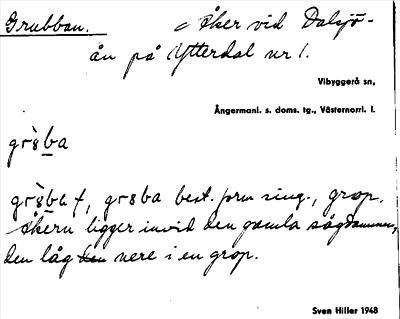 Grubban. Åker vid Dalsjö-
ån på Ytterdal nr 1.
Vibyggerå sn,
Ångermanl. s. doms. tg., Västernorrl. l.
grs̀ba
grs̀ba f, grsba best. form sing., grop.
Åkern ligger invid den gamla sågdammen,
den låg nere i en grop.
Sven Hiller 1948